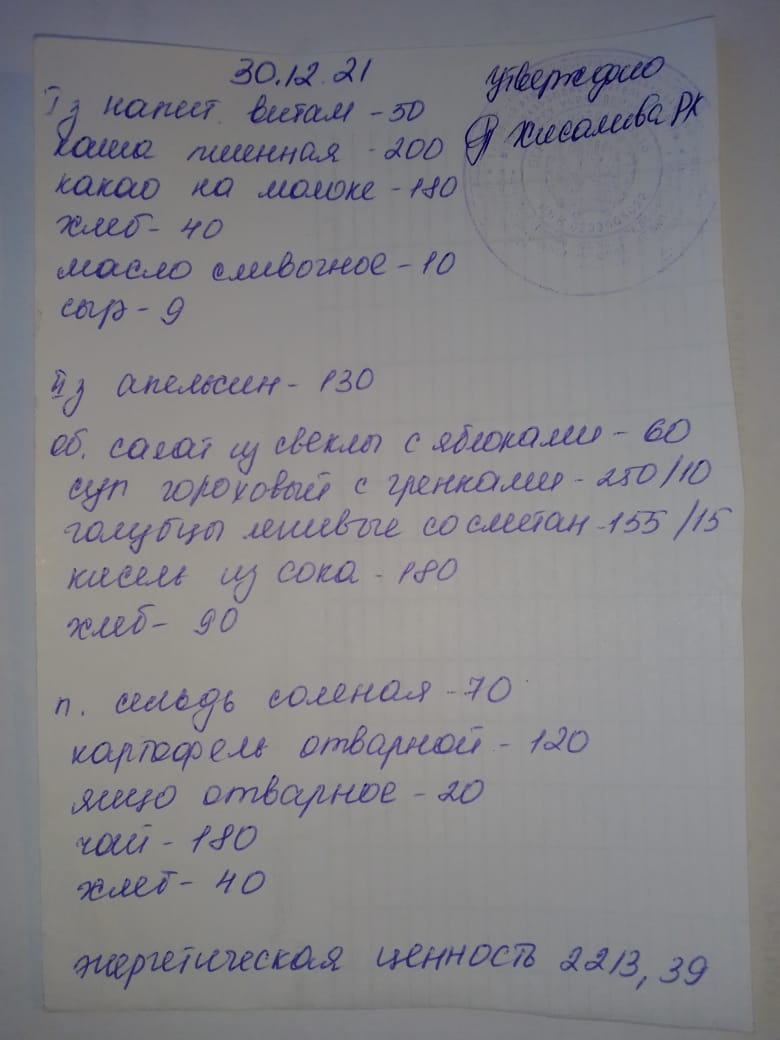 30.12.21
Утверждаю
Хисамова РК
I з напит. витам - 50
каша пшенная - 200
какао на молоке - 180
хлеб - 40
масло сливочное - 10
сыр - 9
II з апельсин - 130
об. салат из свеклы с яблоками - 60
суп гороховый с гренками - 250/10
голубцы ленивые со сметан - 155/15
кисель из сока - 180
хлеб - 90
п. сельдь соленая - 70
картофель отварной - 120
яйцо отварное - 20
чай - 180
хлеб - 40
энергетическая ценность 2213,39